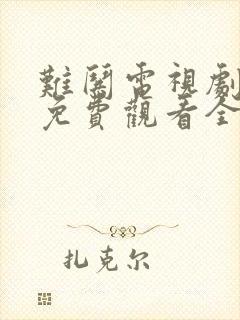 難鬪電視劇
免費觀看全
扎克尔